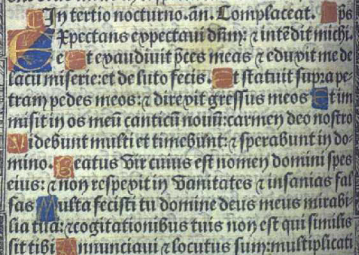 In tertio nocturno. añ. Complaceat. p̄s
Expectans expectaui dñm: ⁊ intēdit michi.
Et exaudiuit p̄ces meas ⁊ eduxit me de
lacu miserie: et de luto fecis. Et statuit supra pe-
tram pedes meos: ⁊ direxit gressus meos Et im
misit in os meū canticū nouū: carmen deo nostro
Videbunt multi et timebunt: ⁊ sperabunt in do-
mino. Beatus vir cuius est nomen domini spes
eius: ⁊ non respexit in vanitates ⁊ insanias fal
sas Multa fecisti tu domine deus meus mirabi
lia tua: ⁊ cogitationibus tuis non est qui similis
sit tibi Annunciaui ⁊ locutus sum: multiplicati